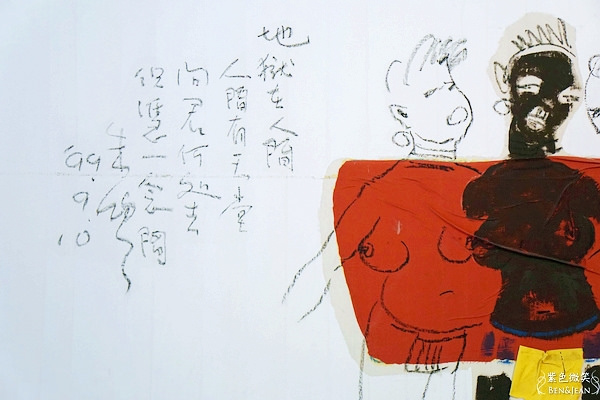 地獄在人間
人間有天堂
问君何处去
但憑一念間
99.9.10
紫色微笑
BEN&JEAN